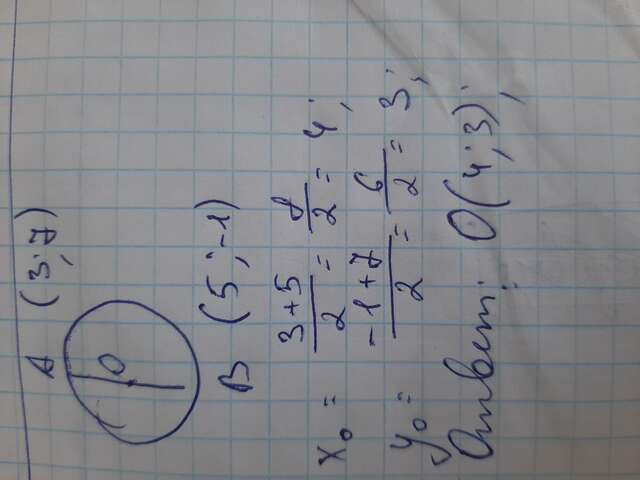 A (3; 7)
O
B (5; -1)
x₀ = 3+5/2 = 8/2 = 4;
y₀ = -1+7/2 = 6/2 = 3;
Ответ: O(4; 3);